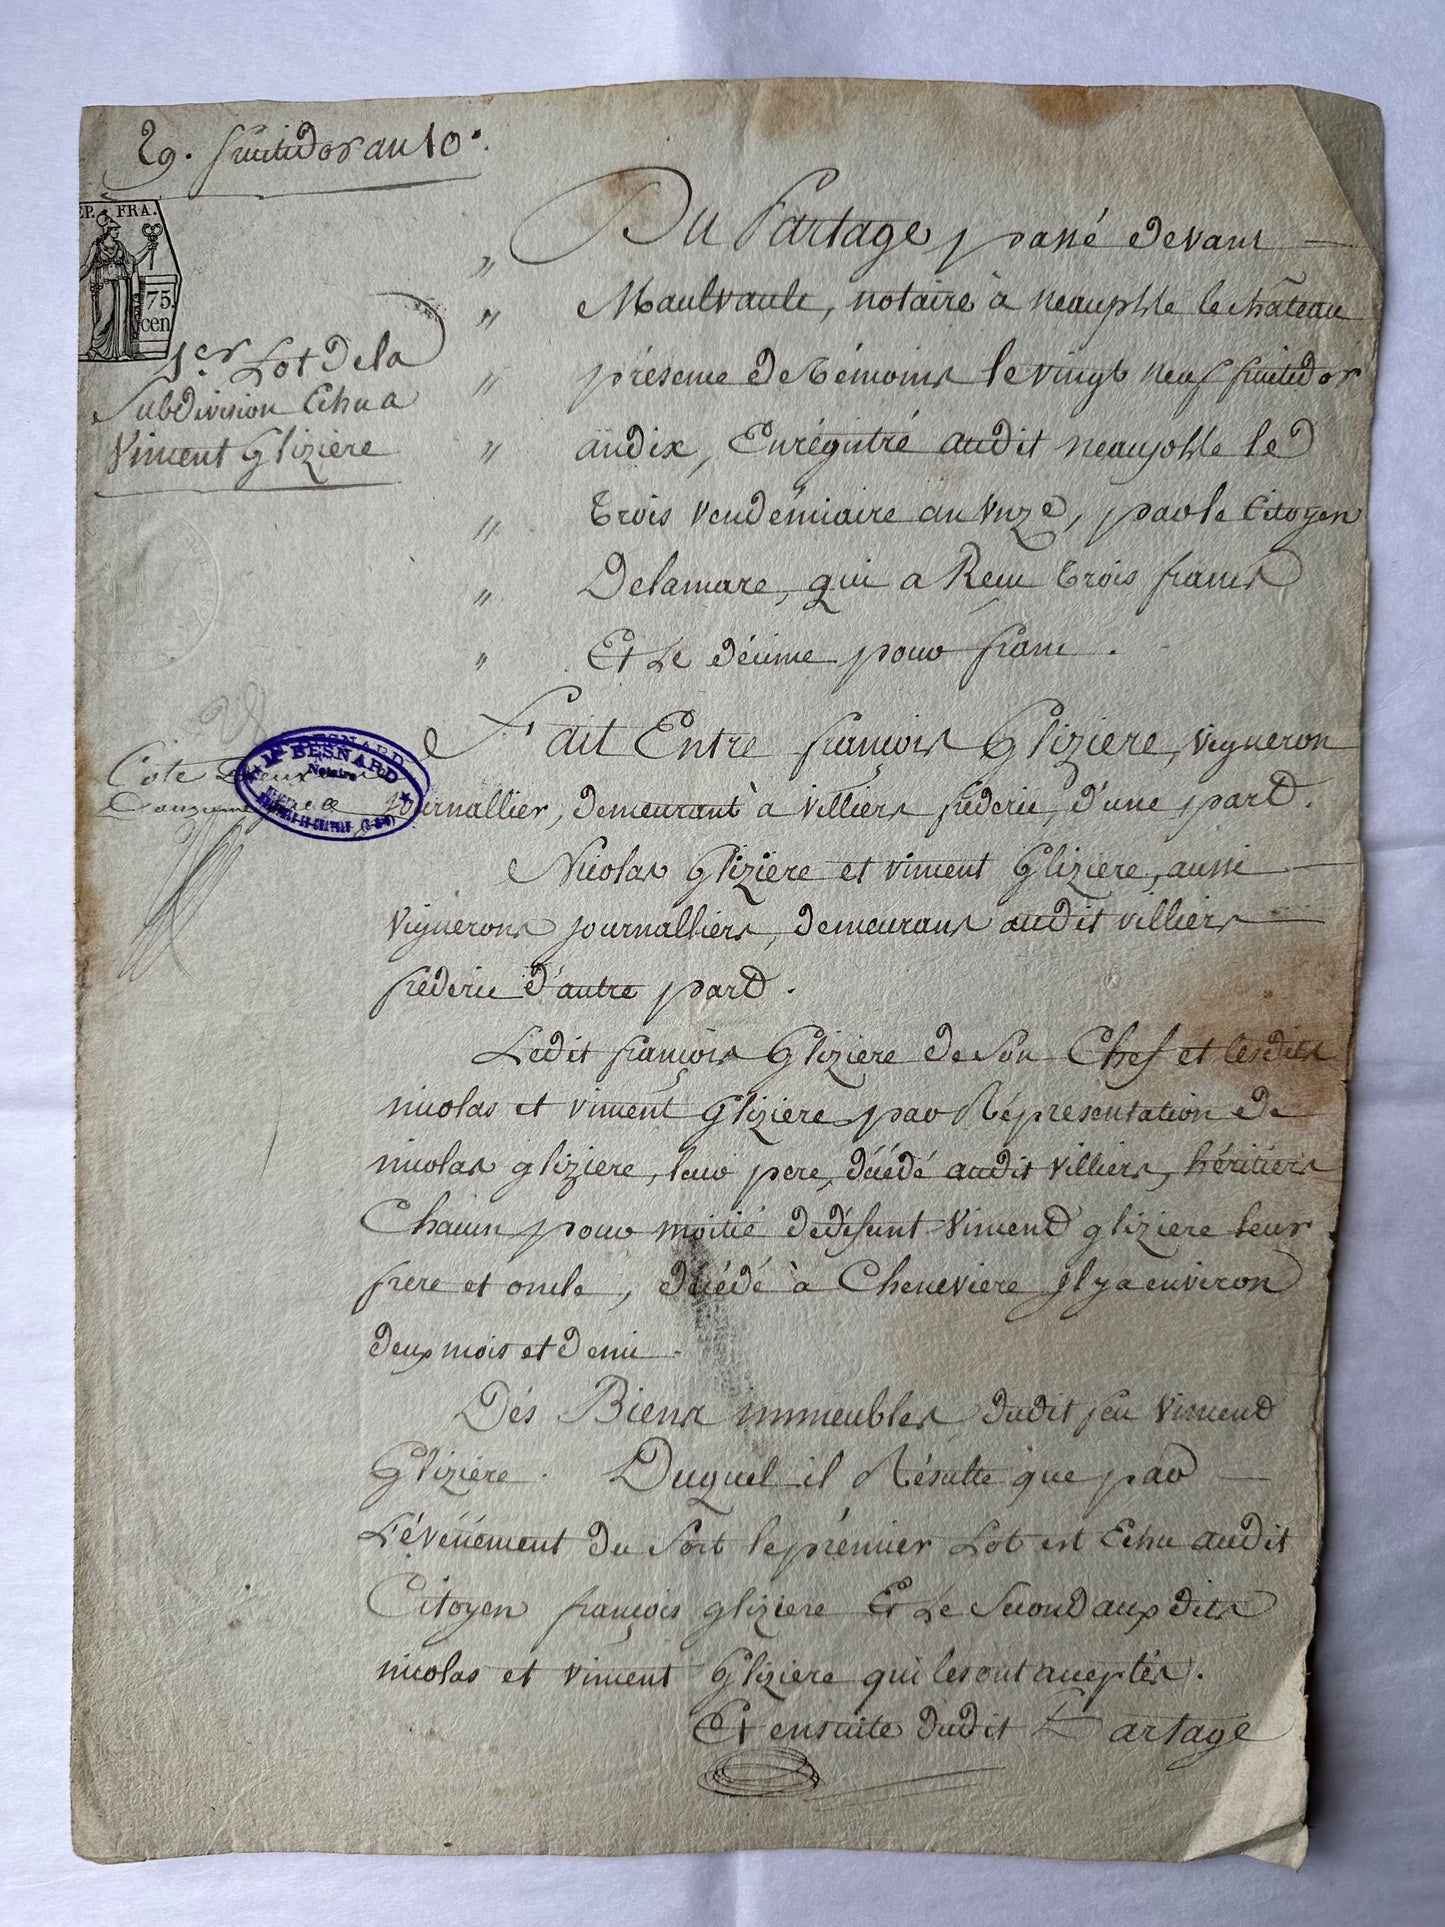 29. fructidor an 10e.
EP. FRA.
75.
cen
1er. Lot de la
Subdivision Echu a
Vincent Glizière
" Du Partage, passé devant
" Maulvault, notaire à neauphle le château
" présence de témoins le vingt neuf fructidor
" an dix, Enrégistré audit neauphle le
" trois vendémiaire an onze, par le Citoyen
" Delamare, qui a Recu trois francs
" Et Le décime pour franc.
Cote Deux
Mn BESNARD
Notaire
Fait Entre françois Glizière, vigneron
journallier, demeurant à villiers fréderic, d'une part.
Nicolas Glizière et vincent Glizière, aussi
vignerons journalliers, demeurans audit villiers
fréderic d'autre part.
Ledit françois Glizière de Son Chef et lesdits
nicolas et vincent Glizière par Réprésentation de
nicolas glizière, leur pere, décédé audit villiers, héritiers
Chacun pour moitié de défunt Vincend glizière leur
frère et oncle, décédé à Chenevière Il y a environ
deux mois et demi.
Dés Biens immeubles dudit feu Vincend
Glizière. Duquel il Résulte que par
L'événement du Sort le prémier Lot est Echu audit
Citoyen françois glizière Et Le Second aux dits
nicolas et vincent Glizière qui les ont aceptés.
Et ensuite dudit Partage